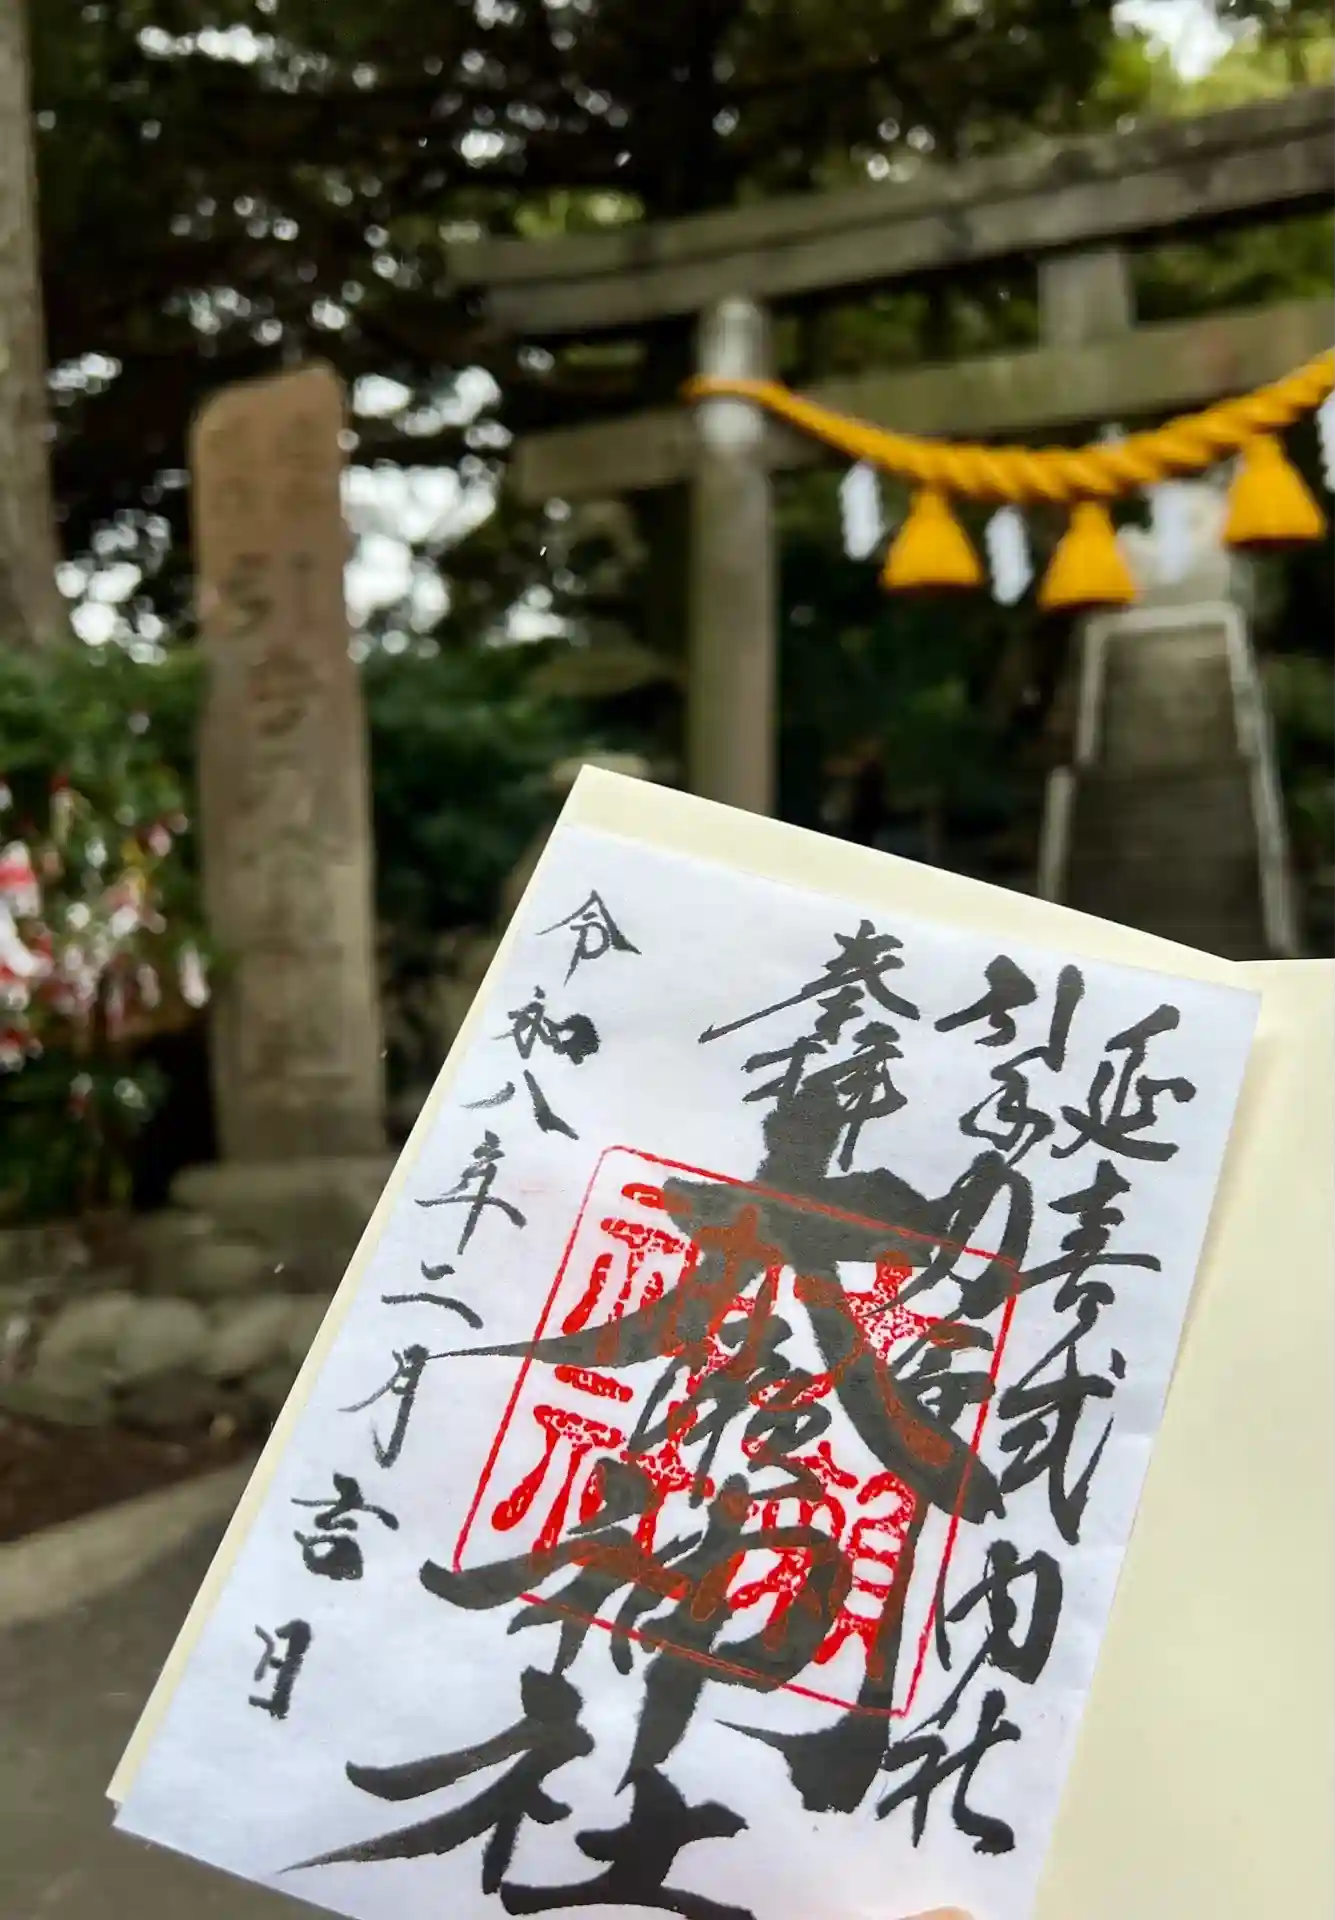 延喜式内社
引手力命
奉拝
大瀬神社
令和八年二月吉日